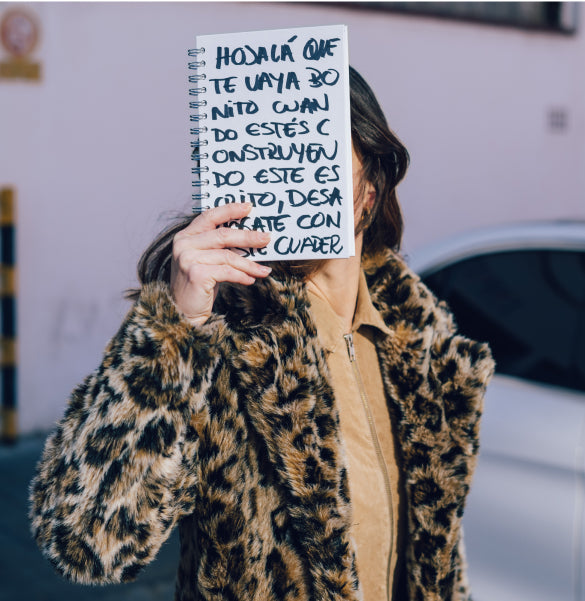 HOJALÁ QUE
TE VAYA BO
NITO CUAN
DO ESTÉS C
ONSTRUYEN
DO ESTE ES
CRITO, DESA
CON
CUADER